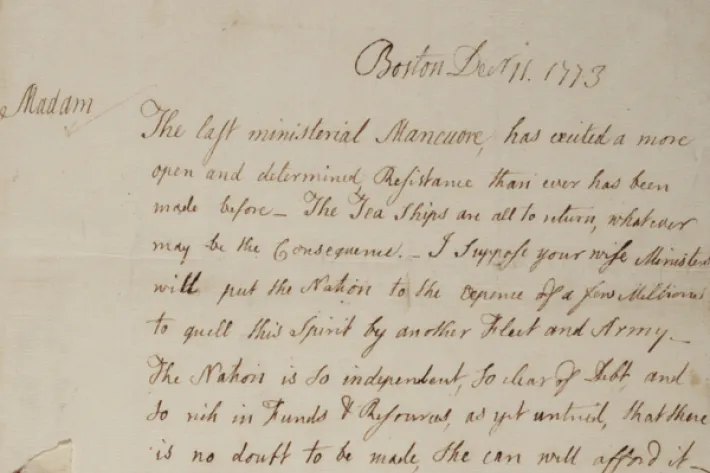 Boston Decr. 11. 1773
Madam
The last ministerial Manœuvre, has excited a more
open and determined Resistance than ever has been
made before — The Tea Ships are all to return, whatever
may be the Consequence. — I suppose your wise Ministers
will put the Nation to the expence of a few Millions
to quell this Spirit by another Fleet and Army. —
The Nation is so independent, so clear of Debt, and
so rich in Funds & Resources, as yet untried, that there
is no doubt to be made, She can well afford it —